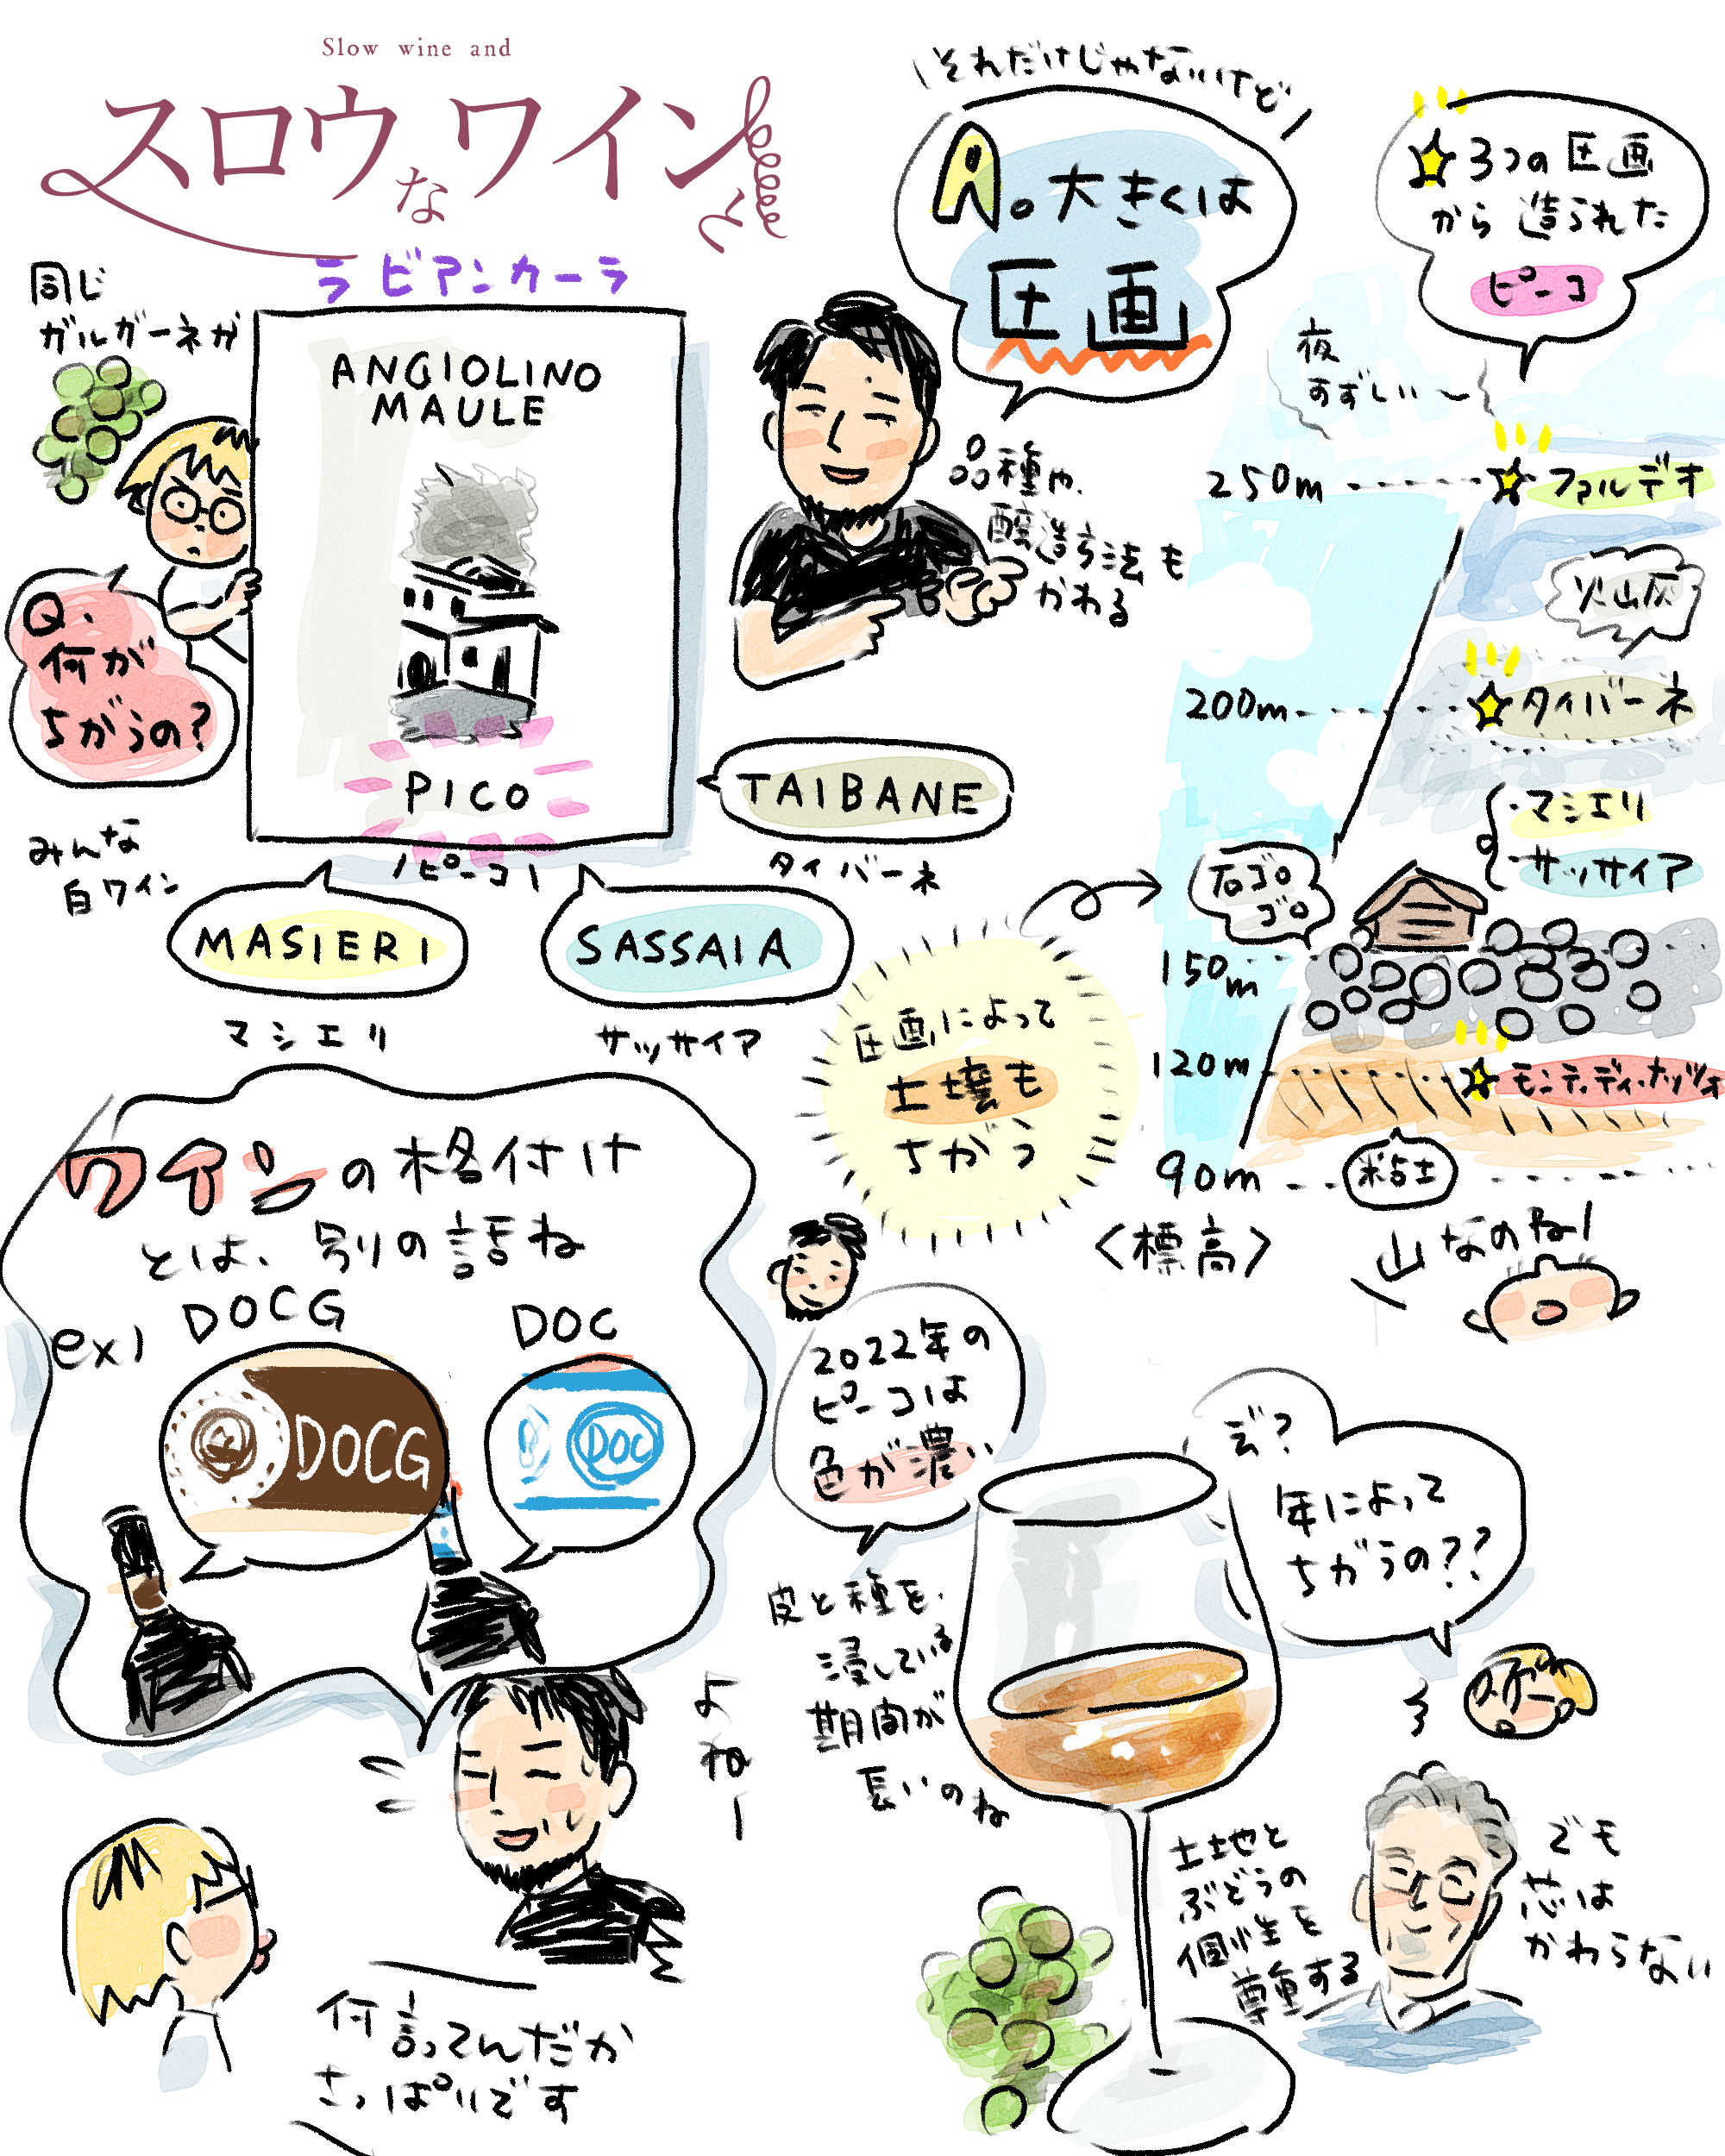 Slow wine and
スロウなワインと
ラビアンカーラ
同じ
ガルガーネガ
ANGIOLINO
MAULE
PICO
\ピーコ/
Q、
何が
ちがうの?
みんな
白ワイン
MASIERI
マシエリ
SASSAIA
サッサイア
TAIBANE
タイバーネ
\それだけじゃないけど/
A。大きくは
区画
品種や、
醸造方法も
かわる
☆3つの区画
から造られた
ピーコ
夜
すずしい〜
250m
☆ファルデオ
火山灰
200m
☆タイバーネ
・マシエリ
・サッサイア
石ゴロ
ゴロ
150m
120m
☆モンテ・ディ・メッゾ
90m
粘土
<標高>
山なのね!
区画によって
土壌も
ちがう
ワインの格付け
とは、別の話ね
ex)
DOCG
DOC
DOCG
DOC
よねー
何言ってんだか
さっぱりです
2022年の
ピーコは
色が濃い
皮と種を、
浸している
期間が
長いのね
え?
年によって
ちがうの??
土地と
ぶどうの
個性を
尊重する
でも
芯は
かわらない